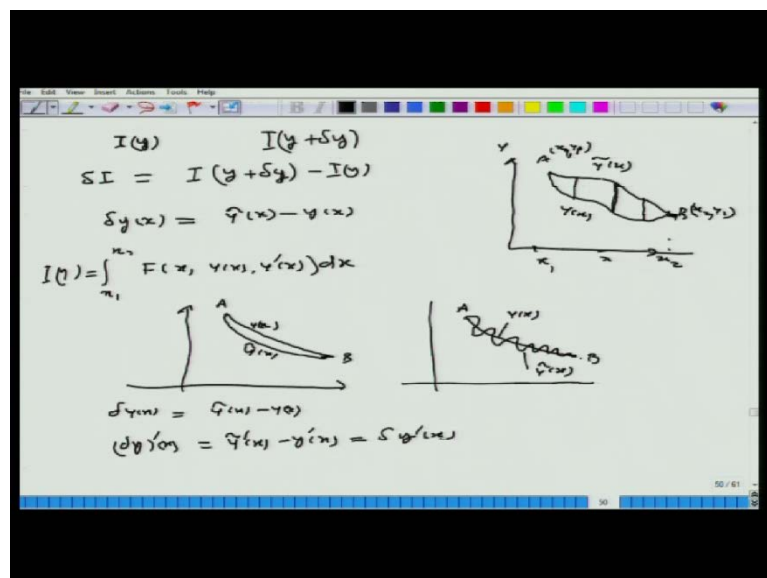 File Edit View Insert Actions Tools Help
I(y) I(y + δy)
δI = I(y + δy) - I(y)
δy(x) = ỹ(x) - y(x)
I(y) = ∫ₓ₁ˣ² F(x, y(x), y'(x)) dx
Y
A (x₁, y₁)
ỹ(x)
y(x)
B(x₂, y₂)
x₁ x x₂
A
y(x)
ỹ(x)
B
A
y(x)
B
ỹ(x)
δy(x) = ỹ(x) - y(x)
(δy)'(x) = ỹ'(x) - y'(x) = δy'(x)
50 / 61
50